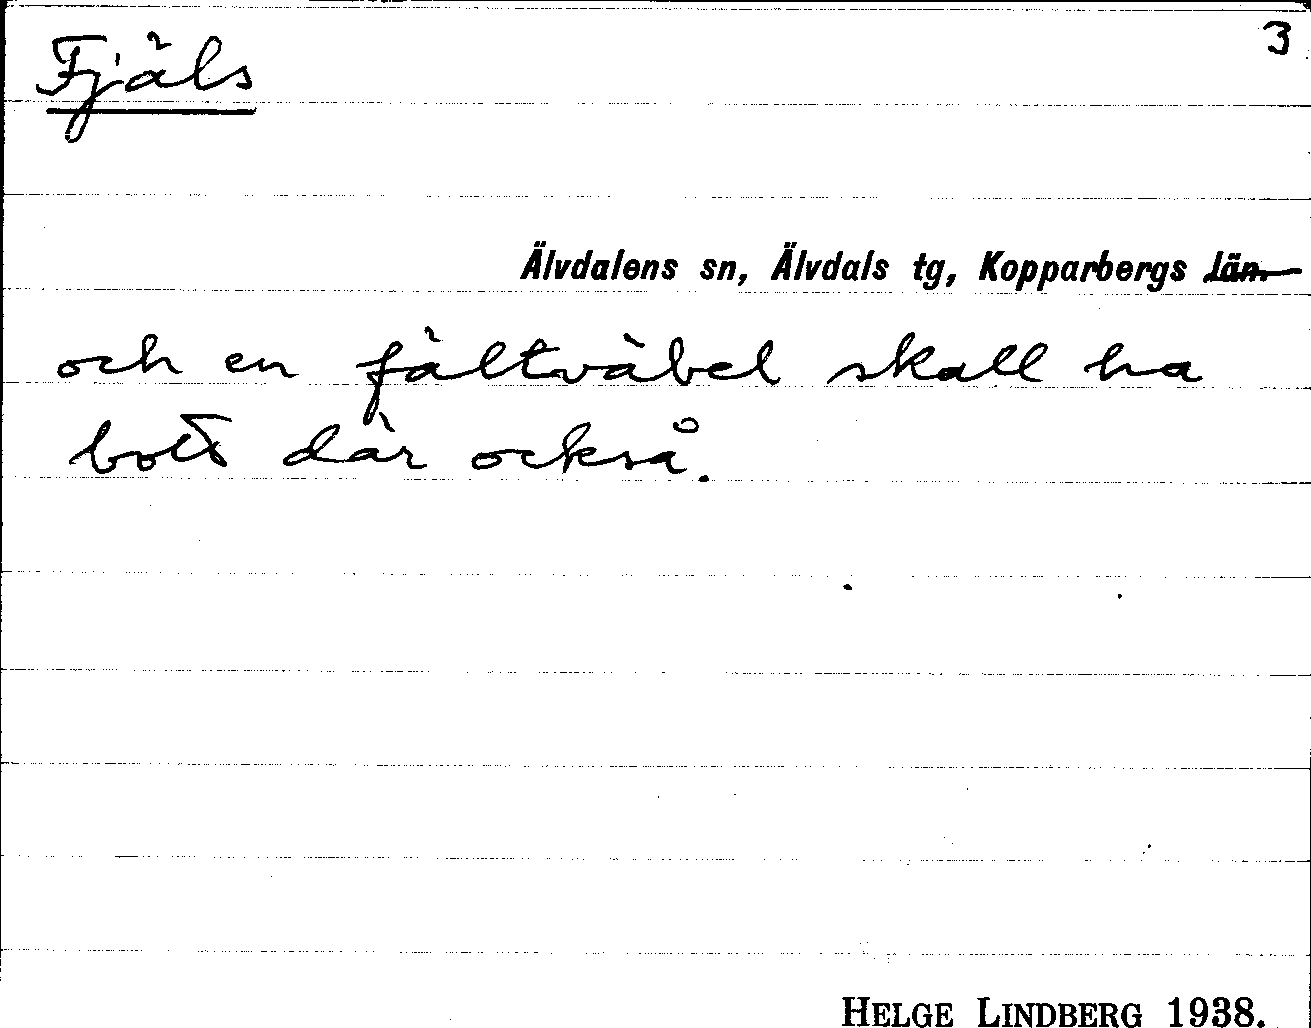 Fjäls 3
Älvdalens sn, Älvdals tg, Kopparbergs län.
och en fältväbel skall ha
bott där också.
HELGE LINDBERG 1938.